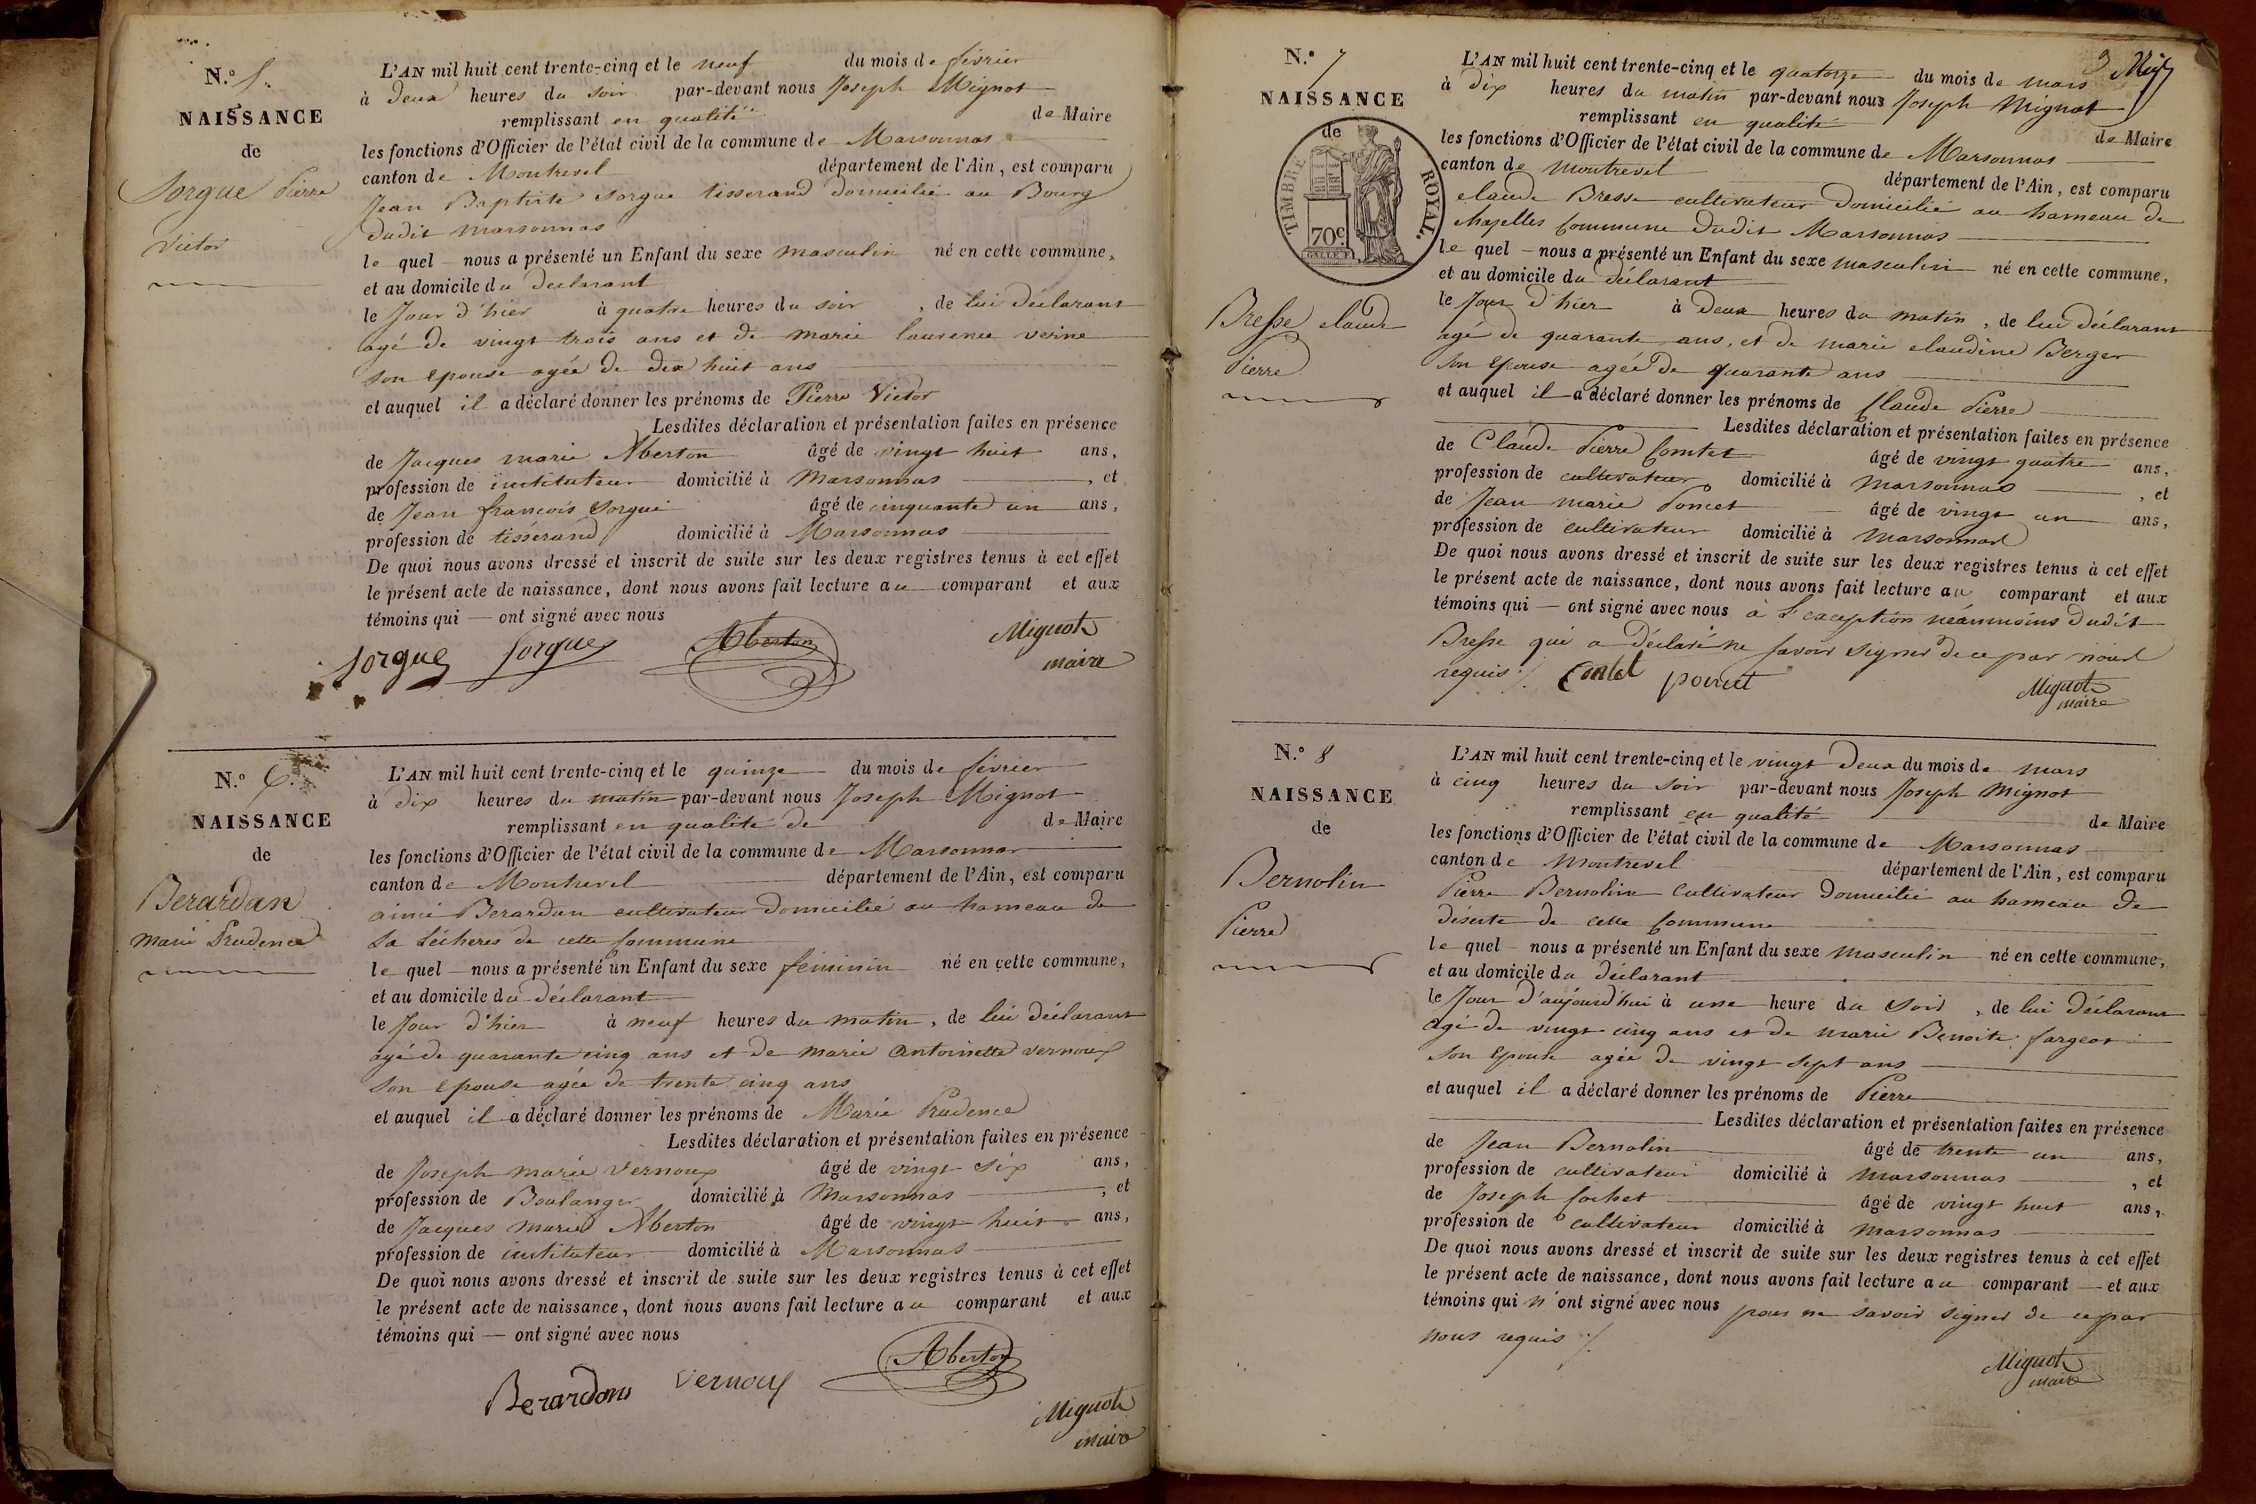 N.º 5.
NAISSANCE
de
Sorgue Pierre
Victor
L'AN mil huit cent trente-cinq et le neuf du mois de février
à deux heures du soir par-devant nous Joseph Mignot
remplissant en qualité de Maire
les fonctions d'Officier de l'état civil de la commune de Marsonnas
canton de Montrevel département de l'Ain, est comparu
Jean Baptiste Sorgue tisserand domicilié au Bourg
dudit marsonnas
le quel nous a présenté un Enfant du sexe masculin né en cette commune,
et au domicile du déclarant
le Jour d'hier à quatre heures du soir, de lui déclarant
agé de vingt trois ans et de marie laurence verine
son epouse agée de dix huit ans
et auquel il a déclaré donner les prénoms de Pierre Victor
Lesdites déclaration et présentation faites en présence
de Jacques marie Aberton âgé de vingt huit ans,
profession de instituteur domicilié à Marsonnas, et
de Jean françois Sorgue âgé de cinquante un ans,
profession de tissérand domicilié à Marsonnas
De quoi nous avons dressé et inscrit de suite sur les deux registres tenus à cet effet
le présent acte de naissance, dont nous avons fait lecture au comparant et aux
témoins qui — ont signé avec nous
Sorgue Sorgue Aberton Mignot
maire
N.º 6.
NAISSANCE
de
Berardan
marie Prudence
L'AN mil huit cent trente-cinq et le quinze du mois de février
à dix heures du matin par-devant nous Joseph Mignot
remplissant en qualité de de Maire
les fonctions d'Officier de l'état civil de la commune de Marsonnas
canton de Montrevel département de l'Ain, est comparu
aimé Berardan cultivateur domicilié au hameau de
de cette Commune
le quel nous a présenté un Enfant du sexe féminin né en cette commune,
et au domicile du déclarant
le Jour d'hier à neuf heures du matin, de lui déclarant
agé de quarante cinq ans et de marie antoinette vernoux
son epouse agée de trente cinq ans
et auquel il a déclaré donner les prénoms de Marie Prudence
Lesdites déclaration et présentation faites en présence
de Joseph marie vernoux âgé de vingt six ans,
profession de Boulanger domicilié à Marsonnas, et
de Jacques marie Aberton âgé de vingt huit ans,
profession de instituteur domicilié à Marsonnas
De quoi nous avons dressé et inscrit de suite sur les deux registres tenus à cet effet
le présent acte de naissance, dont nous avons fait lecture au comparant et aux
témoins qui — ont signé avec nous
Berardan vernoux Aberton
Mignot
maire
3 Mig
N.º 7
NAISSANCE
de
TIMBRE ROYAL.
70c
Bresse claude
Pierre
L'AN mil huit cent trente-cinq et le quatorze du mois de mars
à dix heures du matin par-devant nous Joseph Mignot
remplissant en qualité de Maire
les fonctions d'Officier de l'état civil de la commune de Marsonnas
canton de montrevel département de l'Ain, est comparu
claude Bresse cultivateur domicilié au hameau de
chapelles Commune dudit Marsonnas
le quel — nous a présenté un Enfant du sexe masculin né en cette commune,
et au domicile du déclarant
le Jour d'hier à deux heures du matin, de lui déclarant
agé de quarante ans, et de marie claudine Berger
son epouse agée de quarante ans
et auquel il a déclaré donner les prénoms de Claude Pierre
Lesdites déclaration et présentation faites en présence
de Claude Pierre Comtet âgé de vingt quatre ans,
profession de cultivateur domicilié à marsonnas, et
de Jean marie Poncet âgé de vingt un ans,
profession de cultivateur domicilié à marsonnas
De quoi nous avons dressé et inscrit de suite sur les deux registres tenus à cet effet
le présent acte de naissance, dont nous avons fait lecture au comparant et aux
témoins qui — ont signé avec nous à l'exception néanmoins dudit
Bresse qui a déclaré ne savoir signer de ce par nous
requis ./. Contet poncet Mignot
maire
N.º 8
NAISSANCE
de
Bernolin
Pierre
L'AN mil huit cent trente-cinq et le vingt deux du mois de mars
à cinq heures du soir par-devant nous Joseph Mignot
remplissant en qualité de Maire
les fonctions d'Officier de l'état civil de la commune de Marsonnas
canton de Montrevel département de l'Ain, est comparu
Pierre Bernolin Cultivateur domicilié au hameau de
deserte de cette Commune
le quel — nous a présenté un Enfant du sexe masculin né en cette commune,
et au domicile du déclarant
le Jour d'aujourd'hui à une heure du soir, de lui déclarant
agé de vingt cinq ans et de marie Benoite fargeot
son epouse agée de vingt sept ans
et auquel il a déclaré donner les prénoms de Pierre
Lesdites déclaration et présentation faites en présence
de Jean Bernolin âgé de trente un ans,
profession de cultivateur domicilié à marsonnas, et
de Joseph âgé de vingt huit ans,
profession de cultivateur domicilié à marsonnas
De quoi nous avons dressé et inscrit de suite sur les deux registres tenus à cet effet
le présent acte de naissance, dont nous avons fait lecture au comparant — et aux
témoins qui n'ont signé avec nous pour ne savoir signer de ce par
nous requis ./.
Mignot
maire